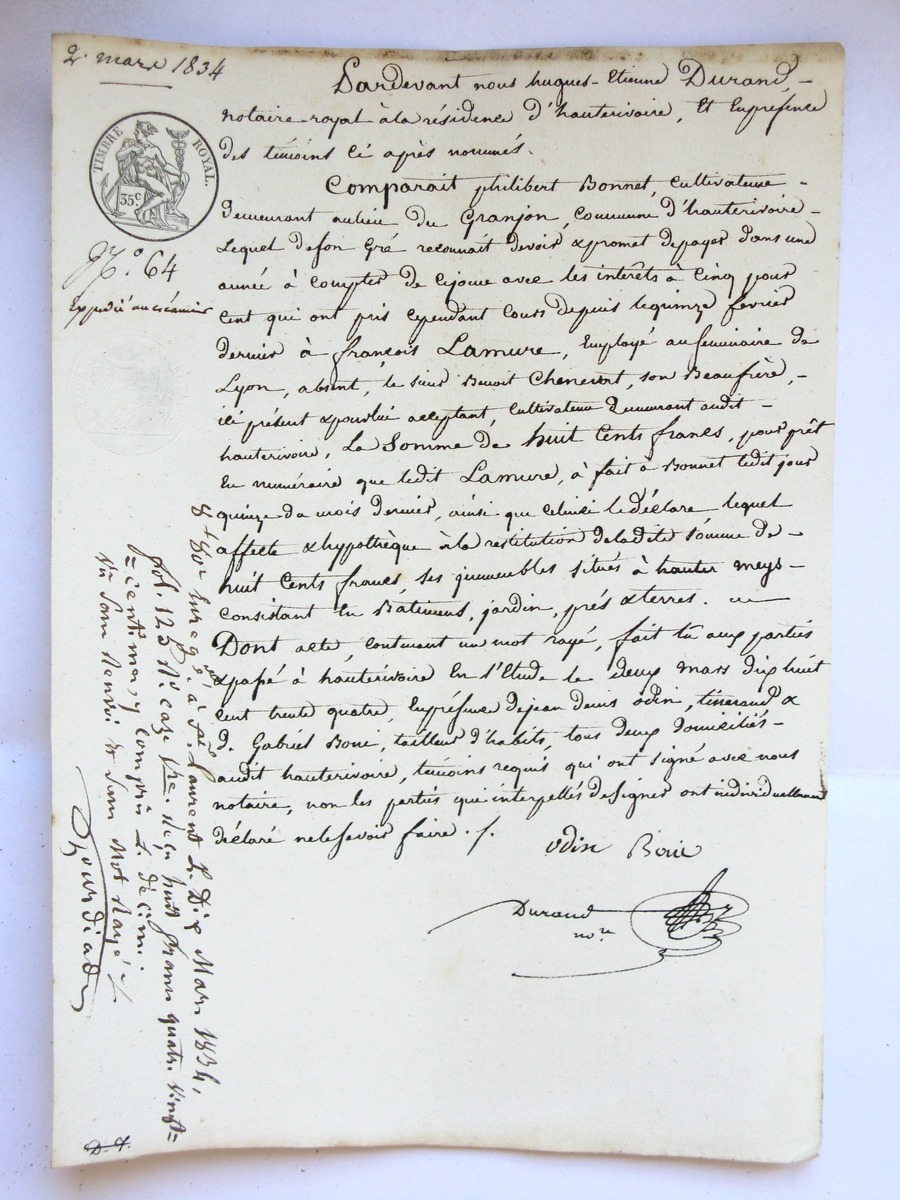 2. mars 1834
TIMBRE ROYAL.
35c
N.° 64
Expédié au créancier
Pardevant nous hugues-Etienne Durand,
notaire royal à la résidence d'hauterivoire, Et en présence
des témoins ci après nommés.
Comparait philibert Bonnet, cultivateur
demeurant au lieu du Granjon, commune d'hauterivoire
Lequel de son gré reconnait devoir & promet de payer dans une
année à compter de ce jour avec les intérêts à Cinq pour
Cent qui ont pris cependant cours depuis le quinze février
dernier à françois Lamure, Employé au seminaire de
Lyon, absent, le sieur Benoit Chenevort, son Beaufrère,
ici présent & pour lui acceptant, cultivateur demeurant audit
hauterivoire, La Somme de huit Cents francs, pour prêt
En numéraire que ledit Lamure, à fait à Bonnet ledit jour
quinze du mois dernier, ainsi que celui ci le déclare lequel
affecte & hypothèque à la restitution de ladite Somme de
huit Cents francs, ses immeubles situés à hauter meys
consistant En Bâtimens, jardin, prés & terres.
Dont acte, contenant un mot rayé, fait lu aux parties
& passé à hauterivoire En l'Etude le deux mars dix huit
cent trente quatre, En présence de jean denis odin, tisserand &
d. Gabriel Boui, tailleur d'habits, tous deux domiciliés
audit hauterivoire, témoins requis qui ont signé avec nous
notaire, non les parties qui interpellés de signer ont individuellement
déclaré ne le savoir faire ./.
odin Boui
Durand
nore
Enregé à St. Laurent L. Dix Mars 1834,
fol. 125 Ro. case 1re. reçu huit francs quatre vingt
centimes, compris L. décime.
Sans Renvoi et sans Mot Rayé